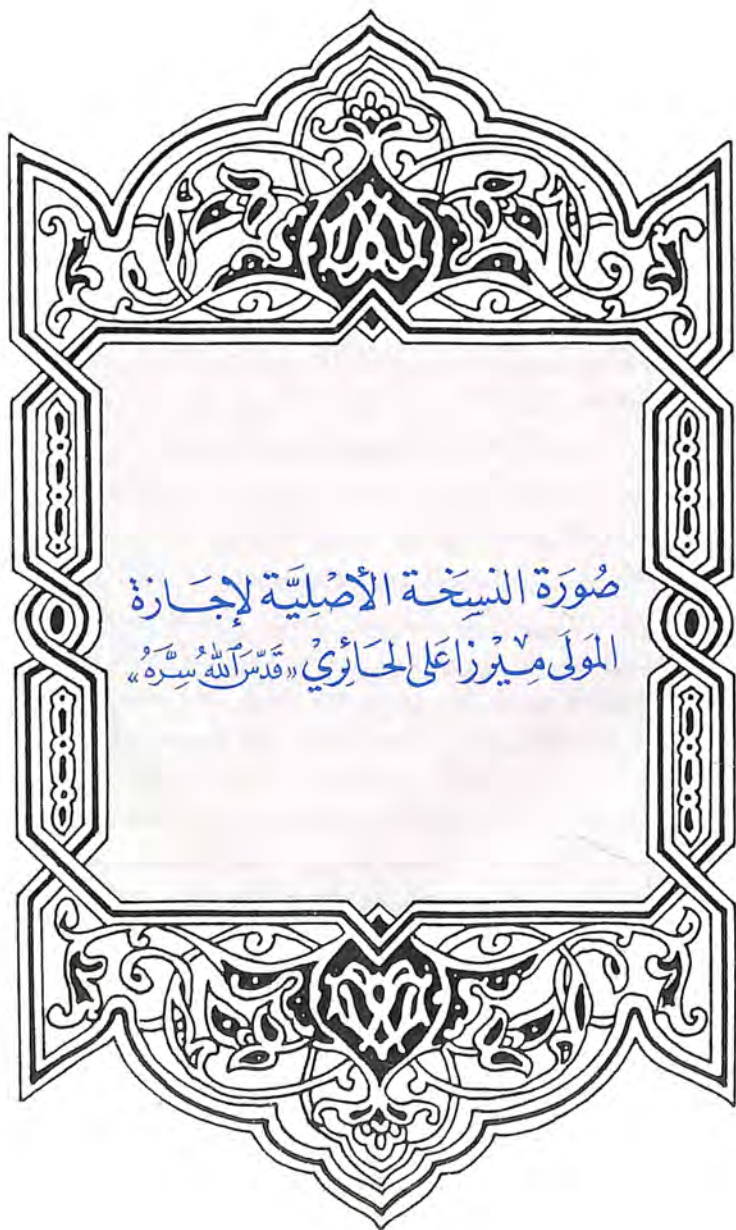 صُورَة النسِخَة الأصْلِيَّة لإجَازة
المَولَى مِيْرزا عَلى الحَائِريْ «قَدّسَ اللّٰهُ سِرَّهُ»